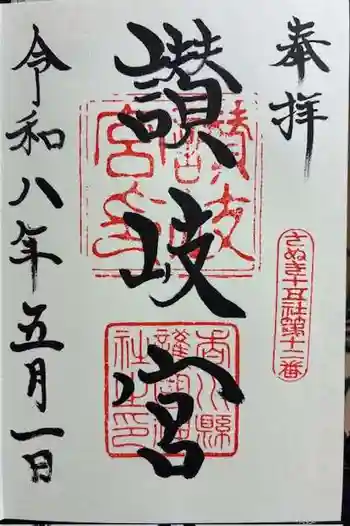 奉拝
さぬき十五社第十二番
讃岐宮
讃岐宮
香川縣護國神社之印
令和八年五月一日